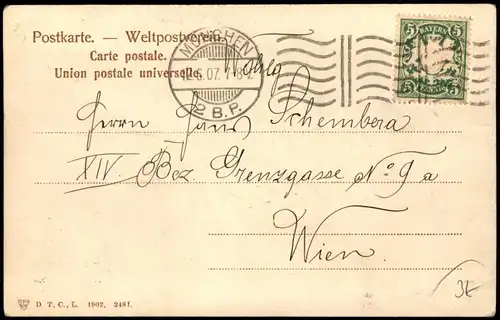 Postkarte. — Weltpostverein.
Carte postale.
Union postale universelle.
MÜNCHEN
6.07.
2 B.P.
BAYERN
5 5
5 5
Wohlg.
Herrn Hans Schembera
XIV. Bez. Grenzgasse No 9a
Wien
D. T. C., L. 1902. 2481.